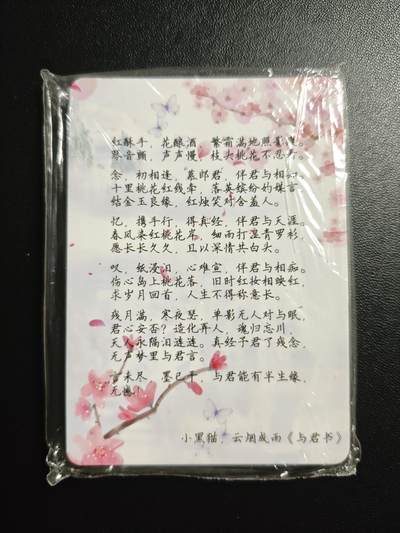 红酥手，花酿酒 繁霜满地照
琴音颤，声声慢，枝头桃花不忍看。
念，初相逢，慕郎君，伴君与相知。
十里桃花红线牵，落英缤纷约媒言，
结金玉良缘，红烛笑对含羞人。
忆，携手行，得真经，伴君与天涯。
春风染红桃花岸，细雨打湿青罗衫，
愿长长久久，且以深情共白头。
叹，纸浸泪，心难宣，伴君与相痴。
伤心岛上桃花落，旧时红妆相映红，
求岁月回首，人生不得称意长。
残月满，寒夜瑟，单影无人对与眠，
君心安否？造化弄人，魂归忘川，
天人永隔泪涟涟。真经予君了残念，
无声梦里与君言。
言未尽 墨已干，与君能有半生缘，
无憾！
小黑猫，云烟成雨《与君书》